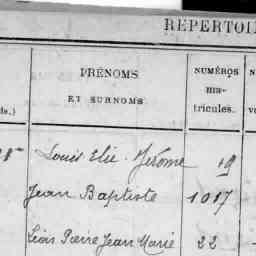 REPERTOI
PRÉNOMS
ET SURNOMS
NUMÉROS
MA-
tricules.
Louis Elie Jérôme 19
Jean Baptiste 1017
Léon Pierre Jean Marie 22